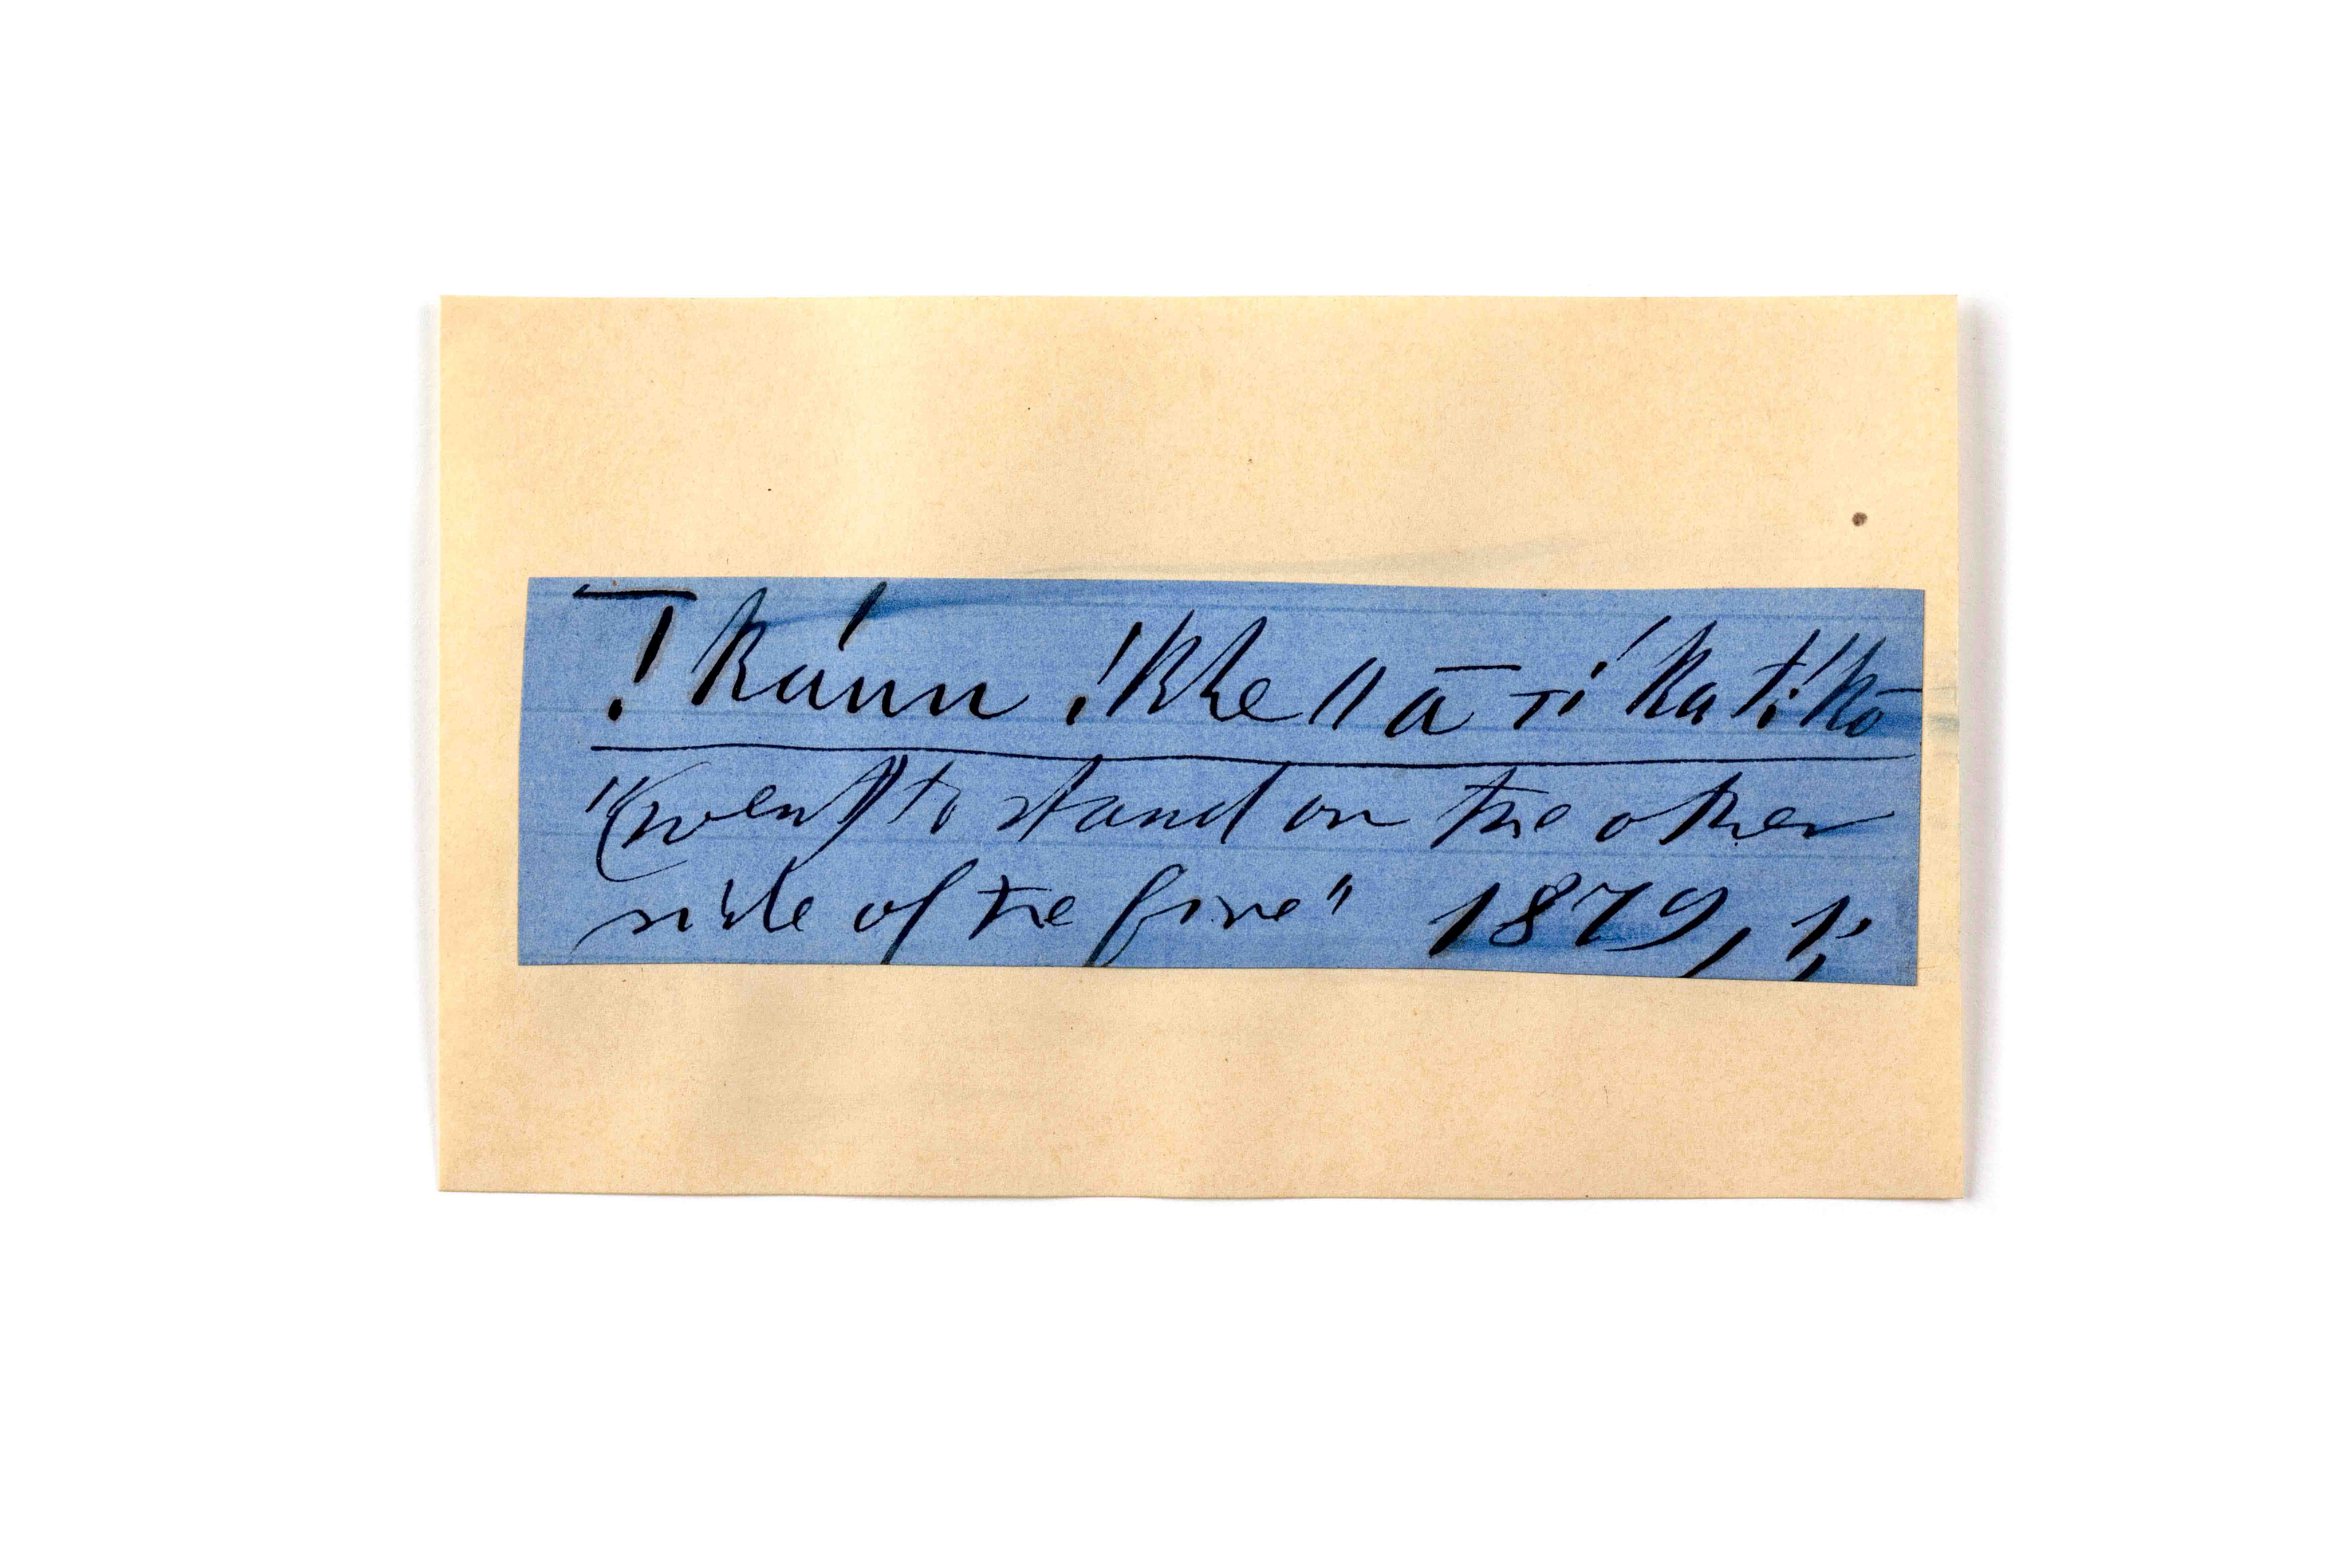 !kaúnn !khe ǁā tí ka ti !kō
"(went) to stand on the other
side of the fire" 1879,